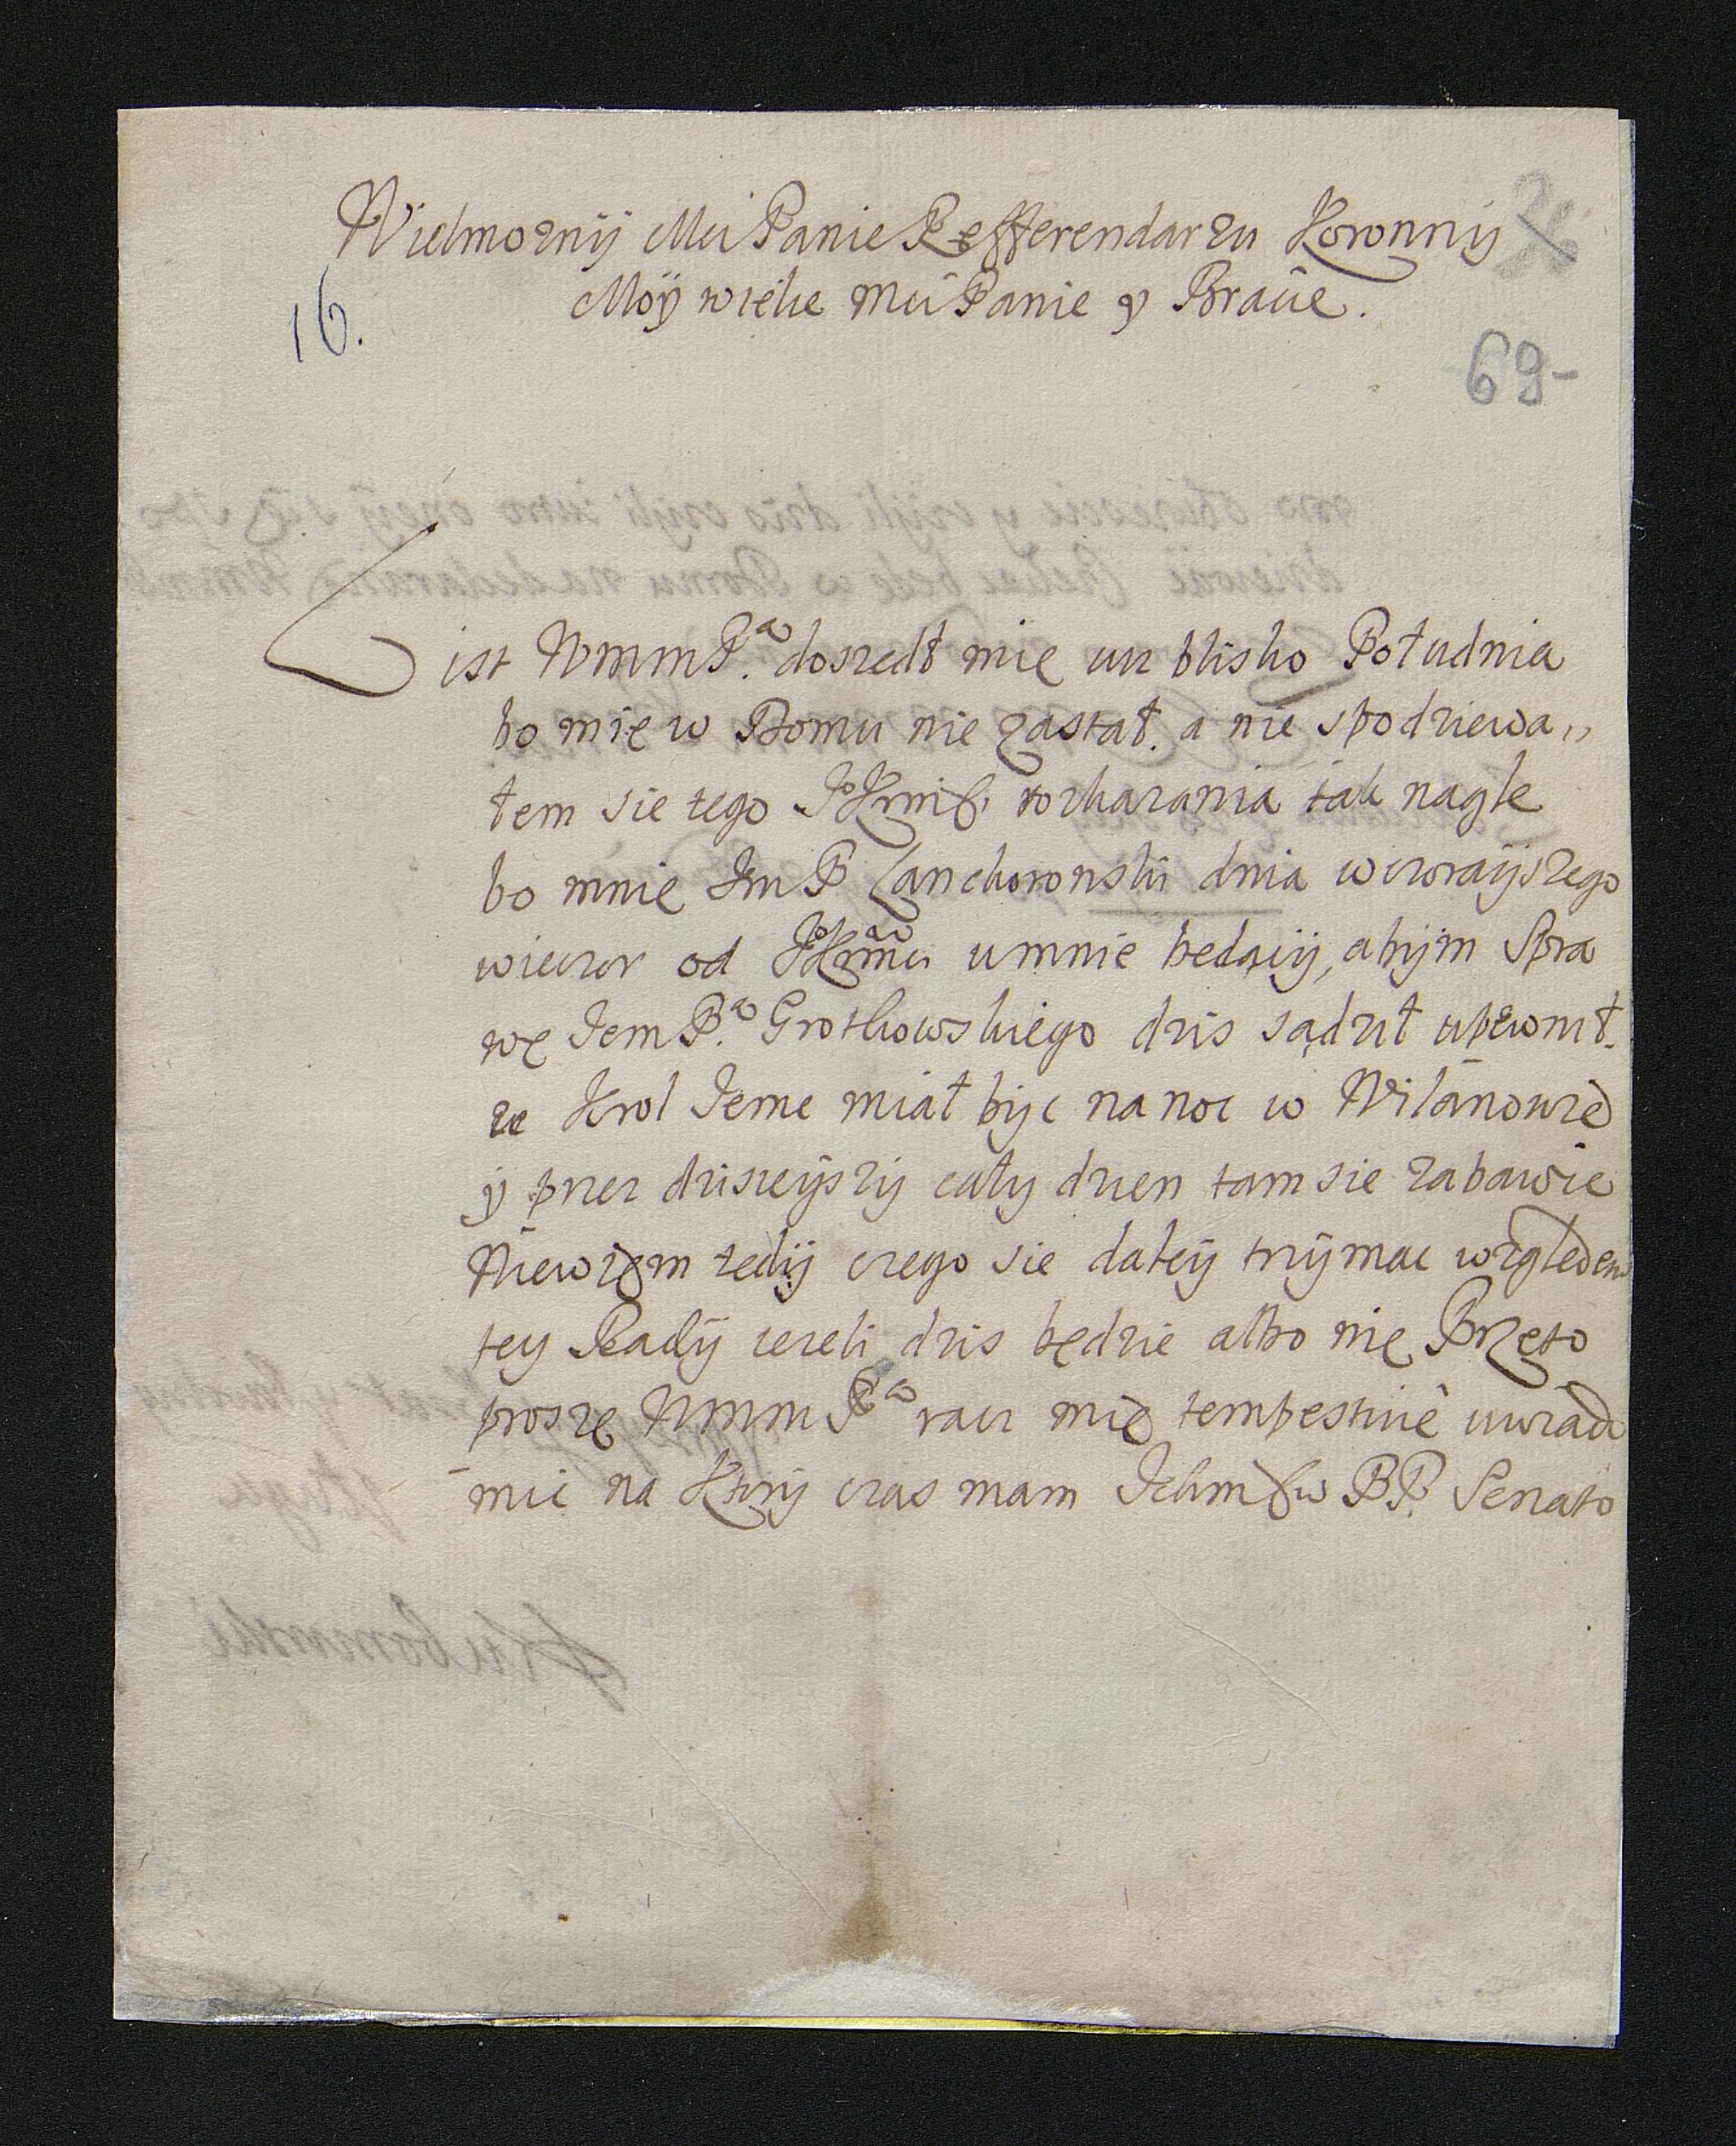 Wielmozny Mci Panie Refferendarzu Koronny
Moy wielce Mci Panie y Bracie.
16.
69-
List WmmPa. doszedł mię iuz blisko Południa
bo mię w Domu nie zastał. a nie spodziewa,,
łem sie tego JKmśći rozkazania tak nagle
bo mnie ImP Lanckoronski dnia wczorayszego
wieczor od JKmći u mnie będący, abym Spra
wę JemPa. Grotkowskiego dzis sądził upewnił.
ze Krol Jeme miał byc na noc w Wilanowie
y przez dzisieyszy cały dzien tam sie zabawic
Niewiem tedy czego sie daley trzymac względem
tey Rady iezeli dzis będzie albo nie Przeto
proszę WmmPa racz mię tempestive uwiado
mic na Ktory czas mam Ichmśćiw PP. Senato